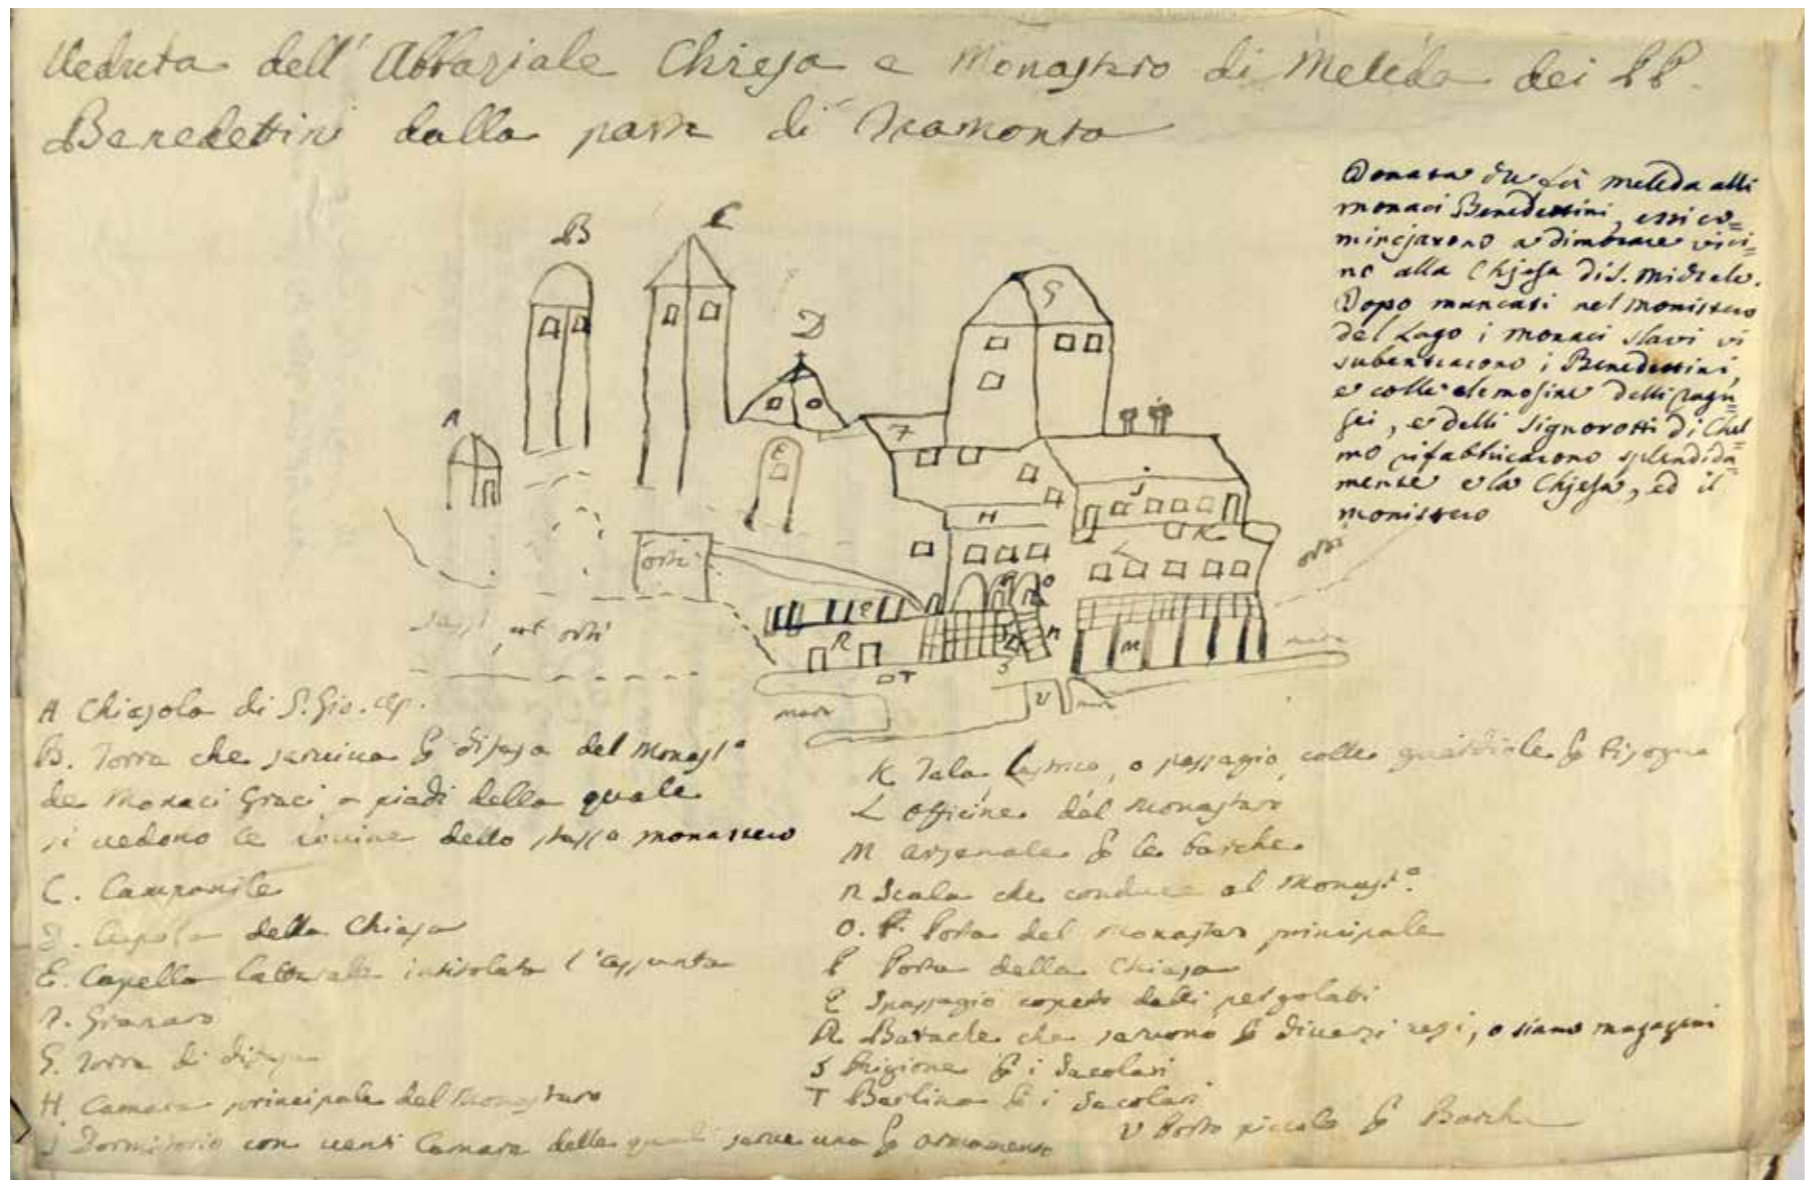 Veduta dell' Abbaziale Chiesa e Monastero di Meleda dei PP.
Benedettini dalla parte di Tramonto
Donata che fù Meleda alli
monaci Benedettini, essi co=
minciarono a dimorare vici=
no alla Chjesa di S. Michele.
Dopo mancati nel monistero
del Lago i monaci slavi vi
subentrarono i Benedettini,
e colle elemosine delli ragu=
sei, e delli signorotti di Chel=
mo rifabbricarono splendida=
mente e la Chjesa, ed il
monistero
B
C
D
G
A
F
E
J
H
K
L
orti
orti
P
O
Q
N
R
M
orti
S
T
mare
V
mare
mare
A Chiesola di S. Gio. Ap.
B. Torre che serviva per difesa del Monast.o
de Monaci Greci a piedi della quale
si vedono le rovine dello stesso monastero
C. Campanile
D. Cupola della Chiesa
E. Capella laterale intitolata l'Assunta
F. Granaro
G. Torre di difesa
H Camare principale del Monastero
J Dormitorio con venti Camare delle quali serve una per armamento
K Tala, o passagio colle per bisogno
L Officine del Monastero
M Arsenale per le barche
N Scala che conduce al Monast.o
O. Porta del Monastero principale
P Porta della Chiesa
Q Spassagio coperto dalli pergolati
R Barache che servono per diversi usi, o siano magazini
S Prigione per i Secolari
T Berlina per i Secolari
V Porto piccolo per Barche